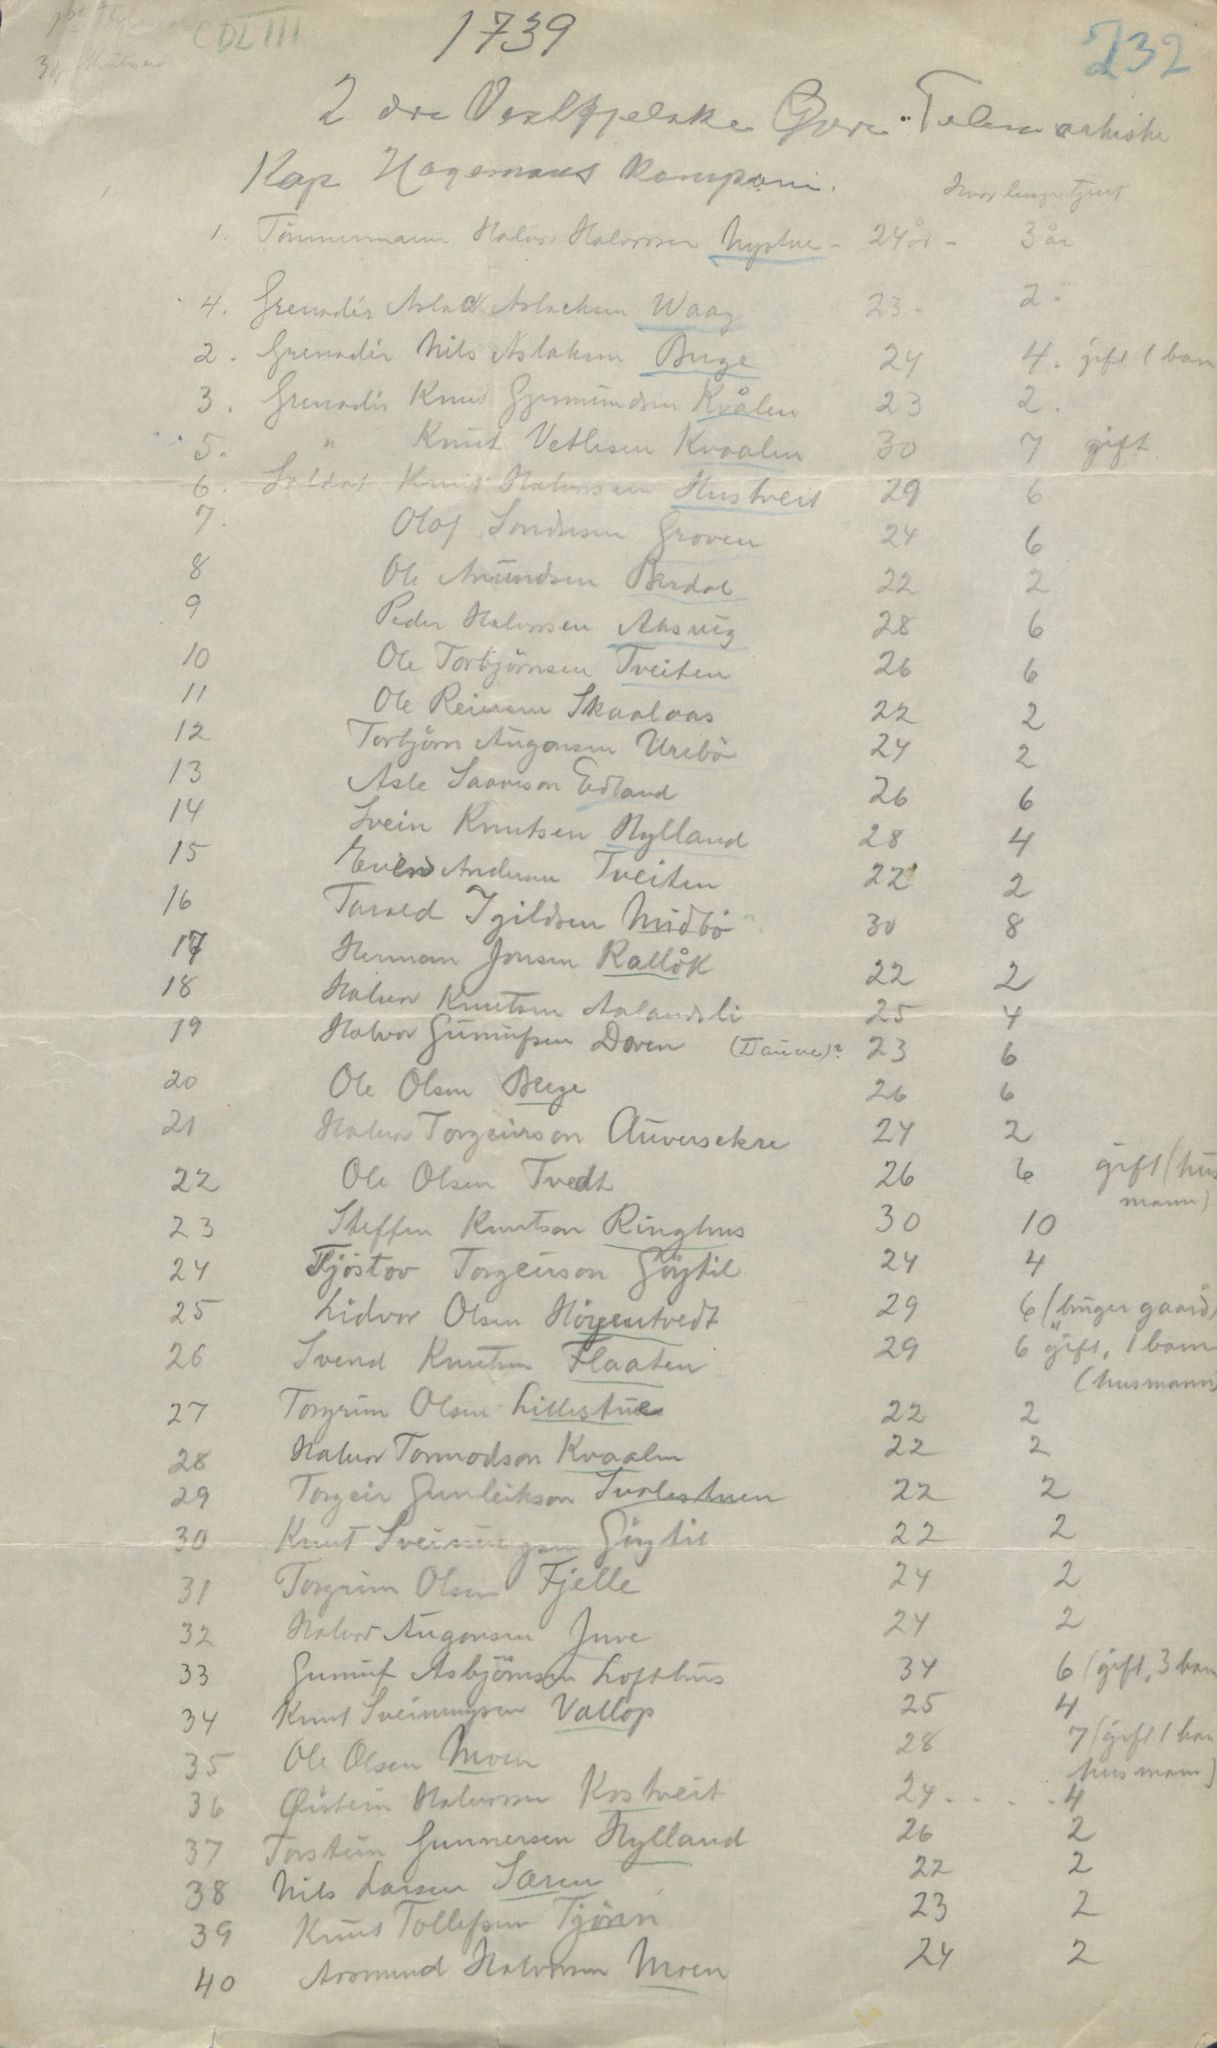 CDLIII
1739
232
2 dre Vestfjelske Øvre Telemarkiske
Kap Hagemans Kompani.
hvor lenge tjent
1. Tömmermann Halvor Halvorsen Nystue - 24 år - 3 år
4. Grenadér Aslack Aslacksen Waag 23. 2.
2. Grenadér Nils Aslaksen Buge 24 4. gift 1 barn
3. Grenadér Knut Gjermundsen Kvålen 23 2.
5. " Knut Vetlesen Kvaalen 30 7 gift
6. Soldat Knut Halvorsen Hustveit 29 6
7. Olaf Sondresen Groven 24 6
8 Ole Amundsen Berdal 22 2
9 Peder Halvorsen Aasvig 28 6
10 Ole Torbjörnsen Tveiten 26 6
11 Ole Reiersen Skaalaas 22 2
12 Torbjörn Augonsen Uribö 24 2
13 Asle Saaveson Edland 26 6
14 Svein Knutsen Nylland 28 4
15 Evend Andersen Tveiten 22 2
16 Tarald Igildsen Midbö 30 8
17 Herman Jonsen Kallåk 22 2
18 Halvor Knutsen Aalandsli 25 4
19 Halvor Gunnufsen Doren (Daure)? 23 6
20 Ole Olsen Berge 26 6
21 Halvor Torgeirson Auversekre 24 2
22 Ole Olsen Tvedt 26 6 gift (hus
mann)
23 Steffen Knutson Ringhus 30 10
24 Tjöstov Torgeirson Göytil 24 4
25 Lidvor Olsen Höyentvedt 29 6 (bruger gaard)
26 Svend Knutsen Flaaten 29 6 gift, 1 barn
(husmann)
27 Torgrim Olsen Lillestue 22 2
28 Halvor Tormodson Kvaalen 22 2
29 Torgeir Gunleikson Svalestuen 22 2
30 Knut Sveinungsen Göytil 22 2
31 Torgrim Olsen Fjelle 24 2
32 Halvor Augonsen Juve 24 2
33 Gunnuf Asbjörnsen Lofthus 34 6 (gift, 3 barn
34 Knut Sveinungsen Vallop 25 4
35 Ole Olsen Moen 28 7 (gift 1 barn
husmann)
36 Øistein Halvorsen Kostveit 24 . . . . 4
37 Torstein Gunnersen Nylland 26 2
38 Nils Larsen Særen 22 2
39 Knut Tollefsen Tjönn 23 2
40 Aasmund Halvorsen Moen 24 2